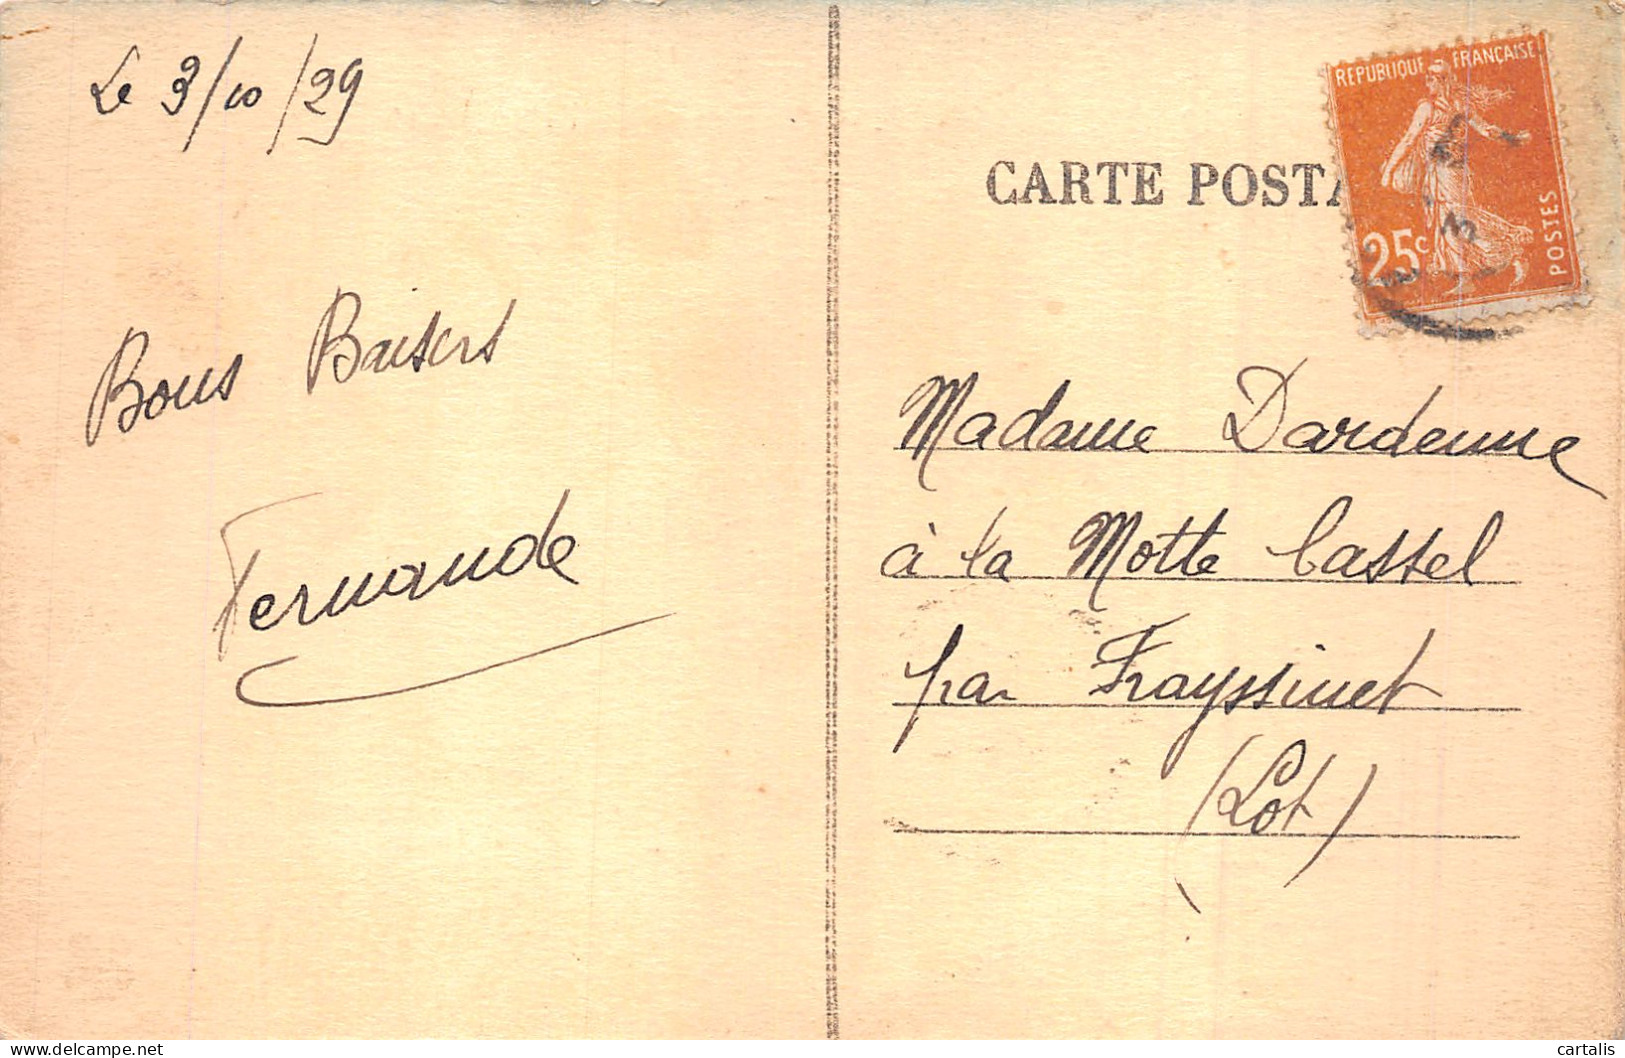 Le 3/10/29
Bons Baisers
Fernande
CARTE POSTA
REPUBLIQUE FRANÇAISE
25c
POSTES
3
Madame Dardenne
à la Motte Cassel
par Frayssinet
(Lot)
cartalis